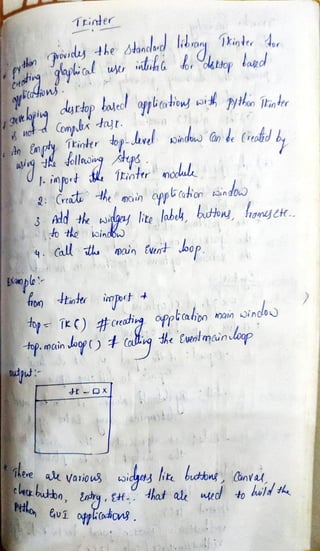 Tkinter
• Python provides the standard library Tkinter for
creating graphical user interface for desktop based
applications.
• Developing desktop based applications with python Tkinter
is not a Complex task.
• An Empty Tkinter top-level window Can be Created by
using the following steps.
1. import the Tkinter module.
2. Create the main application window
3 Add the widgets like labels, buttons, frames etc..
to the window
4. Call the main Event loop.
Example:-
from tkinter import *
top = TK() # creating application main window
top.mainloop() # Calling the Event main loop
output:-
tk - □ X
* There are various widgets like buttons, Canvas,
check button, Entry, Ett.. that are used to build the
Python GUI applications.